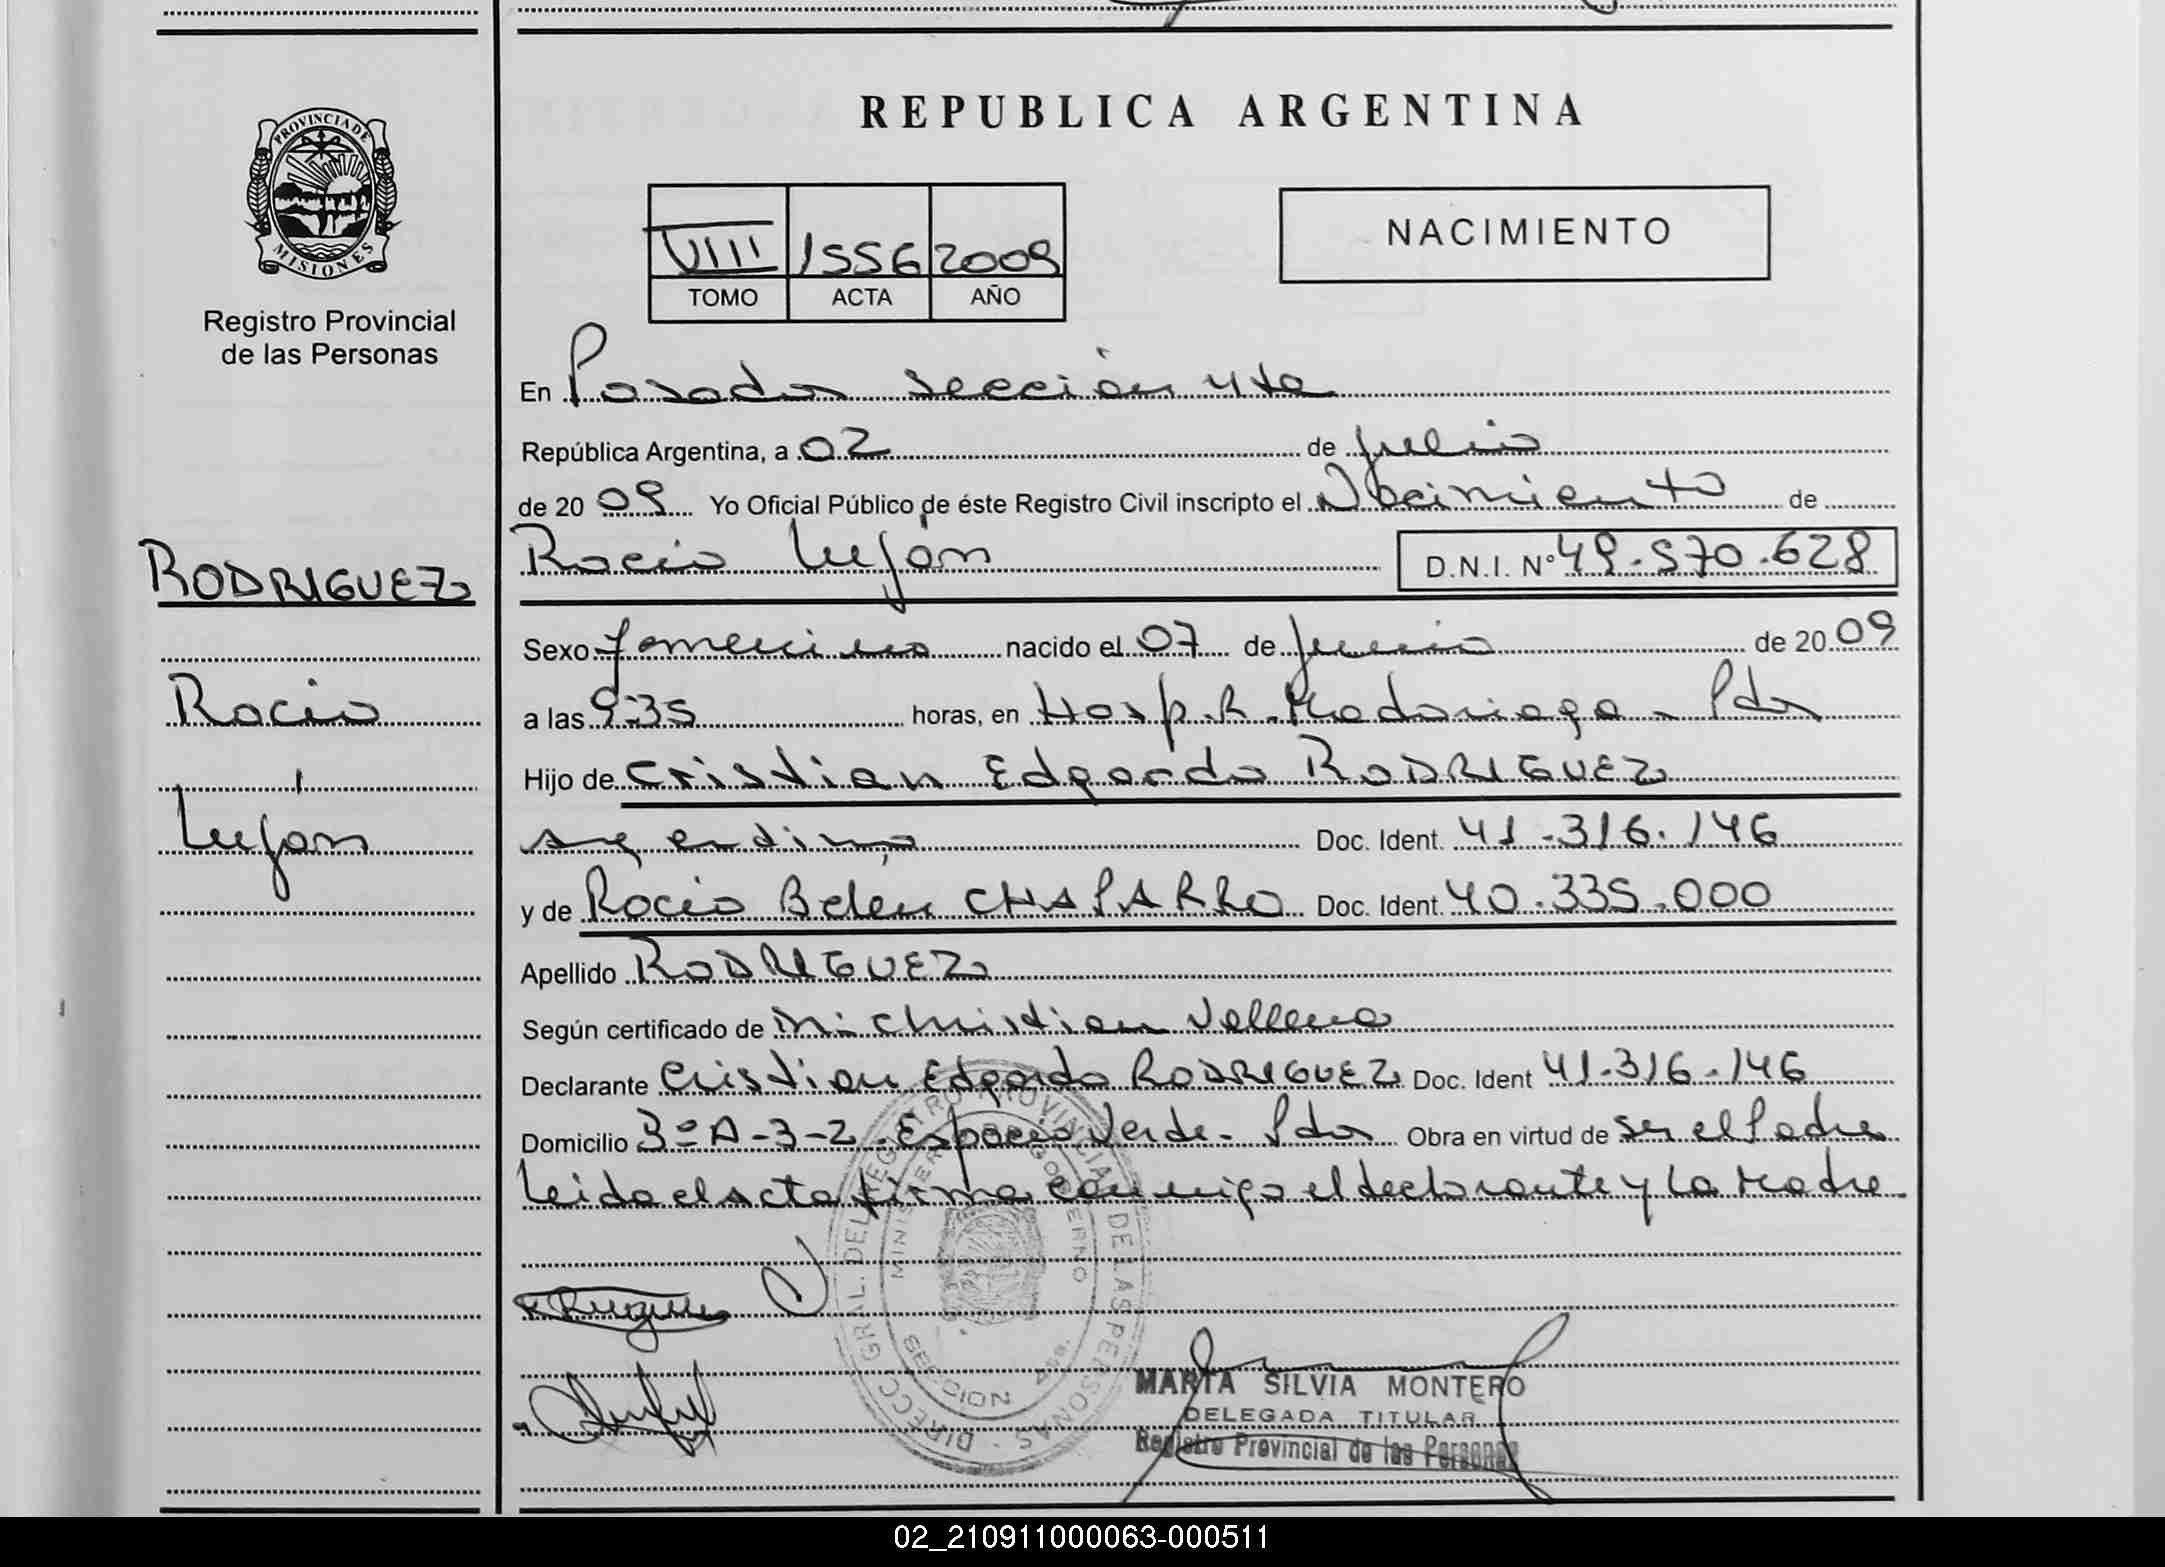 PROVINCIA DE
MISIONES
Registro Provincial
de las Personas
RODRIGUEZ
Rocio
Luján
REPUBLICA ARGENTINA
VIII 1556 2009
TOMO ACTA AÑO
NACIMIENTO
En Posadas sección 4ta
República Argentina, a 02 de julio
de 20 09 Yo Oficial Público de éste Registro Civil inscripto el Nacimiento de
Rocio Luján D.N.I. N° 49.570.628
Sexo femenino nacido el 07 de junio de 20 09
a las 9:35 horas, en Hosp. R. Madariaga - Pdas
Hijo de Cristian Edgardo RODRIGUEZ
argentino Doc. Ident. 41.316.146
y de Rocio Belén CHAPARRO Doc. Ident. 40.335.000
Apellido RODRIGUEZ
Según certificado de Christian
Declarante Cristian Edgardo RODRIGUEZ Doc. Ident 41.316.146
Domicilio 3º A-3-2. Espacio Verde - Pdas Obra en virtud de ser el Padre
Leida el acta firma conmigo el declarante y la Madre.
DIRECC. GRAL. DEL REGISTRO PROVINCIAL DE LAS PERSONAS
GOBIERNO
SECCION 4ta.
MARTA SILVIA MONTERO
DELEGADA TITULAR
Registro Provincial de las Personas
02_210911000063-000511